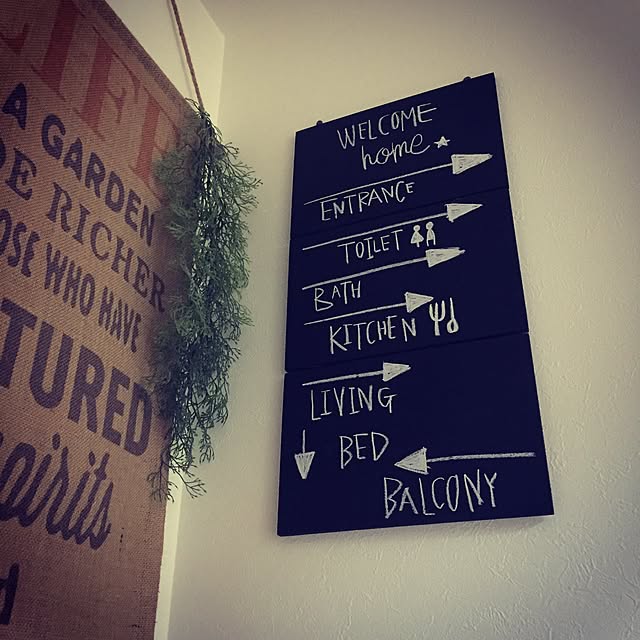 LIFE
A GARDEN
DE RICHER
OSE WHO HAVE
TURED
spirits
d
WELCOME
home
ENTRANCE
TOILET
BATH
KITCHEN
LIVING
BED
BALCONY